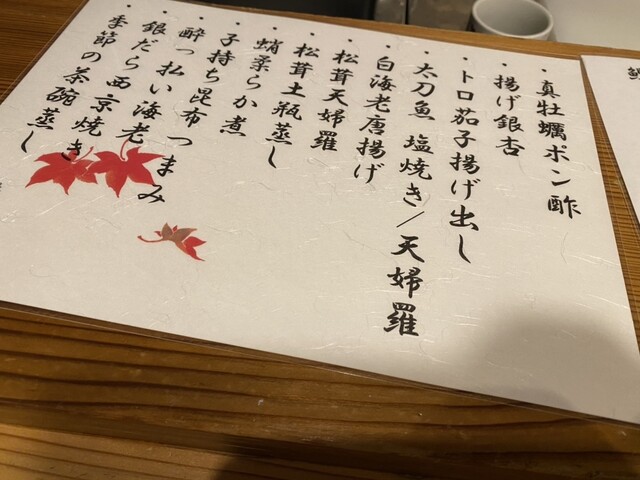 ・真牡蠣ポン酢
・揚げ銀杏
・トロ茄子揚げ出し
・太刀魚 塩焼き/天婦羅
・白海老唐揚げ
・松茸天婦羅
・松茸土瓶蒸し
・蛸柔らか煮
・子持ち昆布つまみ
・酔っ払い海老
・銀だら西京焼き
・季節の茶碗蒸し